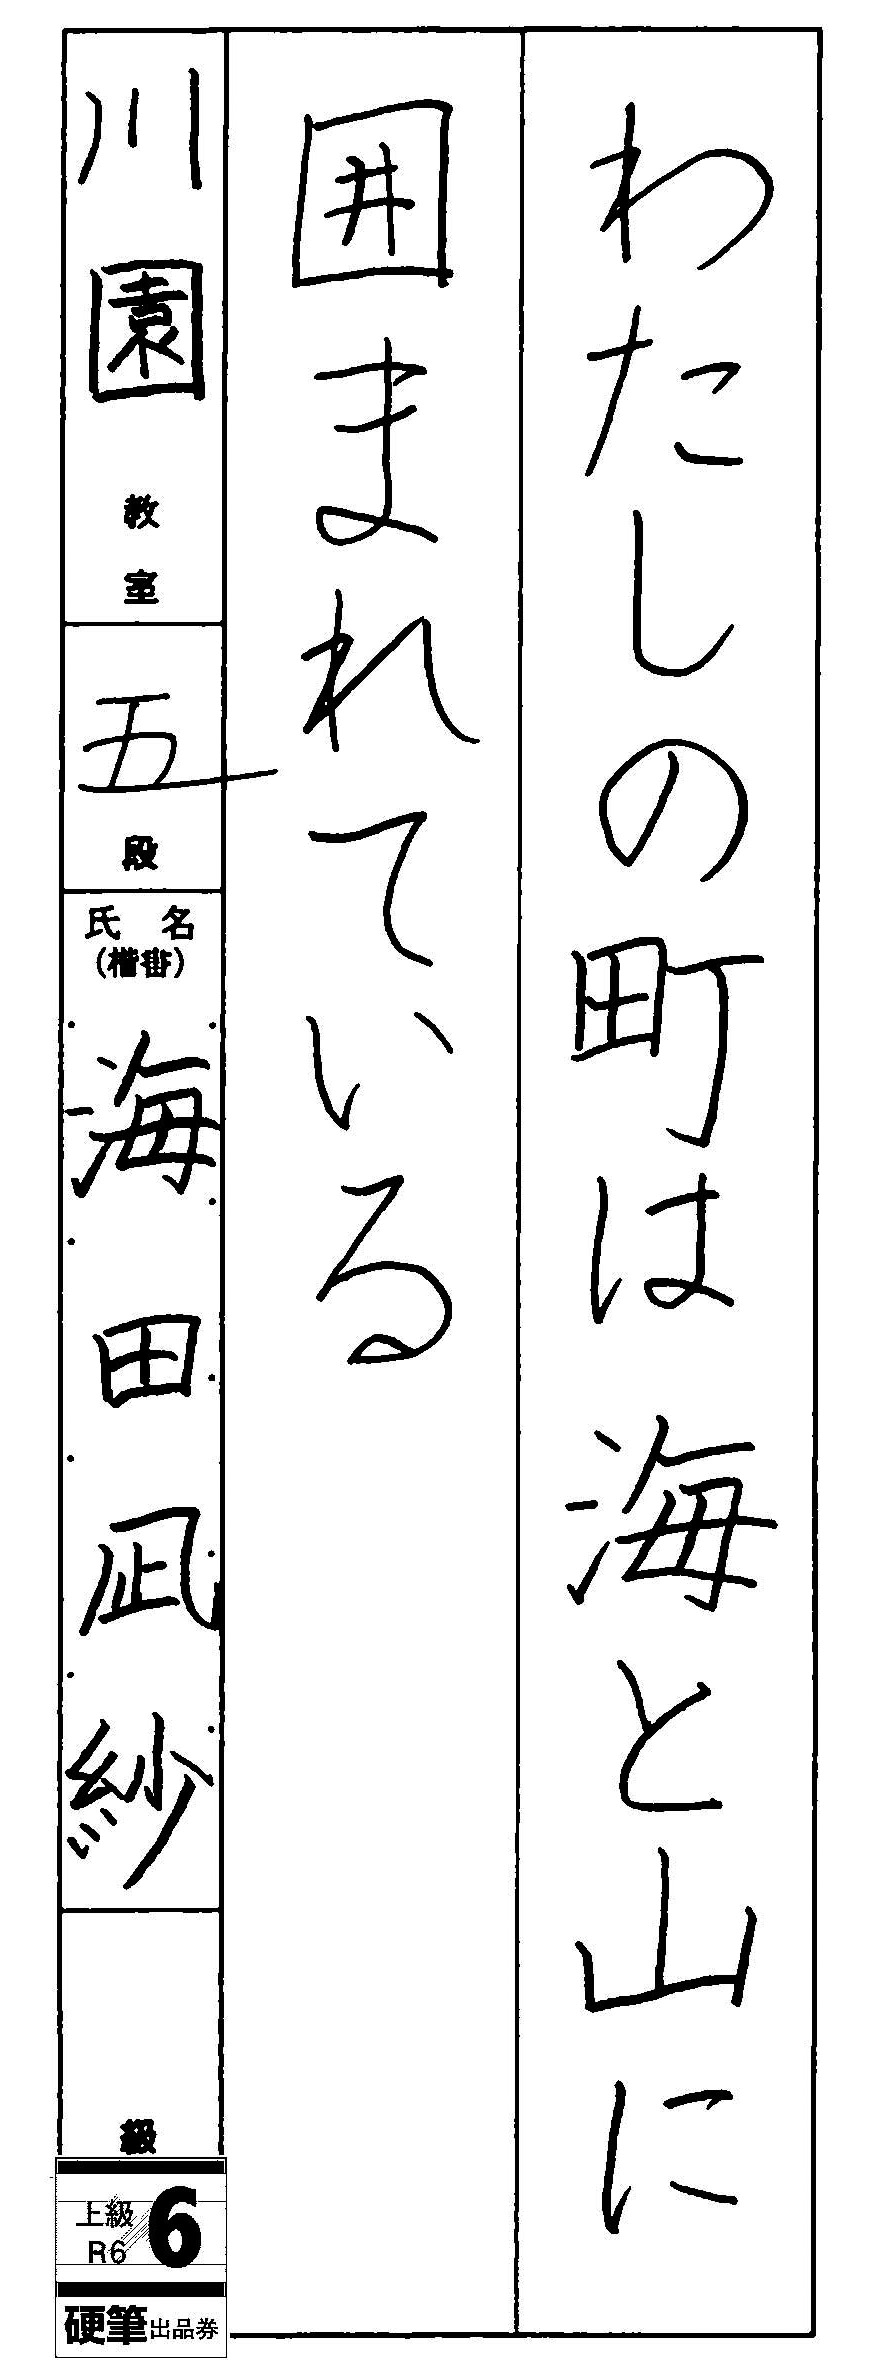 わたしの町は海と山に
囲まれている
川園教室
五段
氏名
(楷書)
海田凪紗
級
上級
R6
6
硬筆出品券